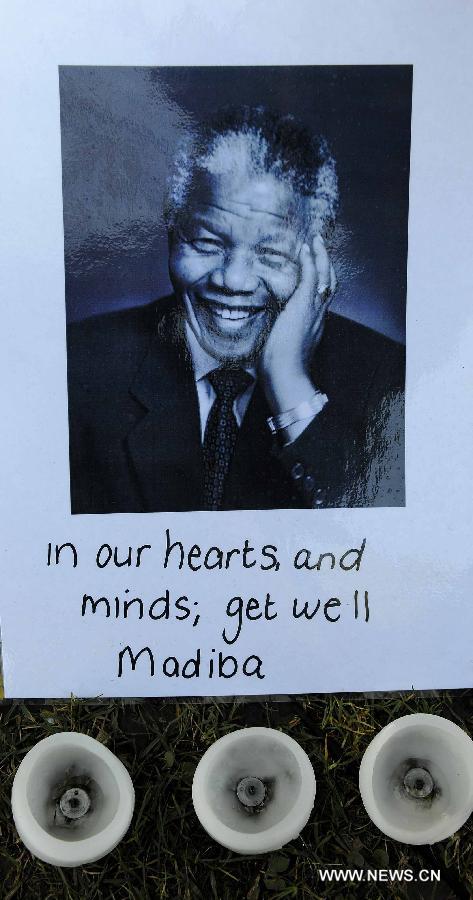 in our hearts, and
minds; get well
Madiba
WWW.NEWS.CN